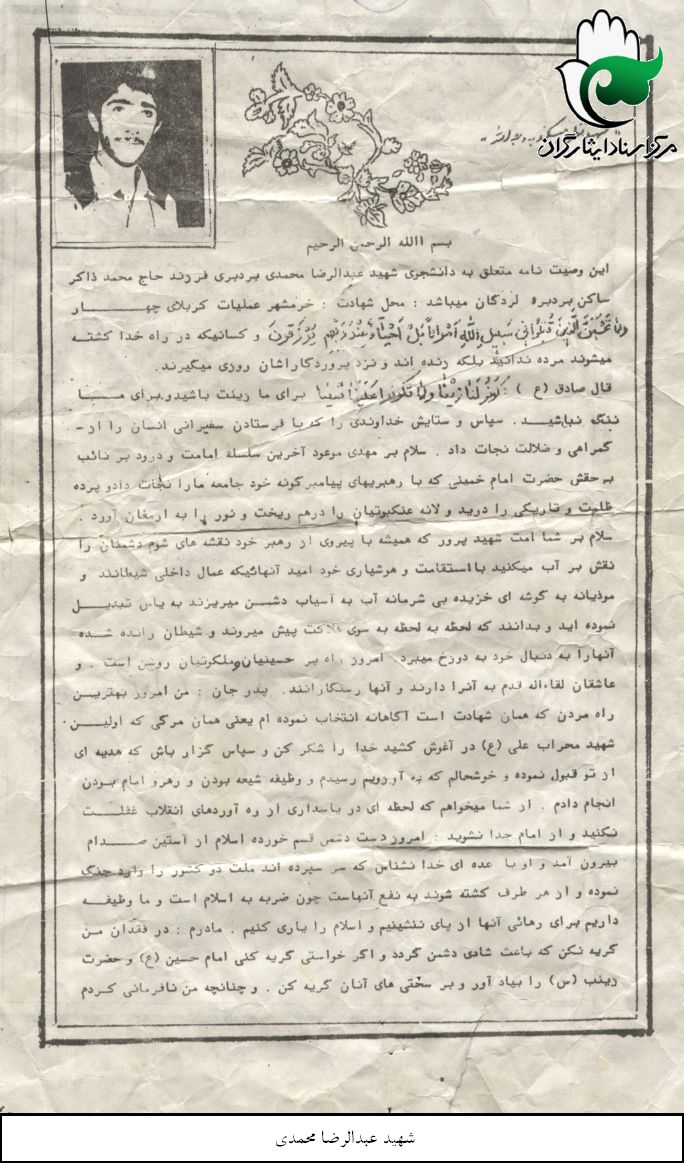 مرکز اسناد ایثارگران
بسم االله الرحمن الرحیم
این وصیت نامه متعلق به دانشجوی شهید عبدالرضا محمدی بردبری فرزند حاج محمد ذاکر
ساکن بردبره لردگان میباشد : محل شهادت : خرمشهر عملیات کربلای چهار
ولا تحسبن الذین قتلوا فی سبیل الله امواتا بل احیاء عند ربهم یرزقون و کسانیکه در راه خدا کشته
میشوند مرده ندانید بلکه زنده اند و نزد پروردگاراشان روزی میگیرند.
قال صادق (ع) : کونوا لنا زینا ولا تکونوا علینا شینا برای ما زینت باشید و برای ما
ننگ نباشید. سپاس و ستایش خداوندی را که با فرستادن سفیرانی انسان را از-
گمراهی و ضلالت نجات داد . سلام بر مهدی موعود آخرین سلسله امامت و درود بر نائب
برحقش حضرت امام خمینی که با رهبریهای پیامبرگونه خود جامعه مارا نجات دادو پرده
ظلمت و تاریکی را درید و لانه عنکبوتیان را درهم ریخت و نور را به ارمغان آورد .
سلام بر شما امت شهید پرور که همیشه با پیروی از رهبر خود نقشه های شوم دشمنان را
نقش بر آب میکنید با استقامت و هوشیاری خود امید آنهائیکه عمال داخلی شیطانند و
موذیانه به گوشه ای خزیده بی شرمانه آب به آسیاب دشمن میریزند به یاس تبدیل
نموده اید و بدانند که لحظه به لحظه به سوی فلاکت پیش میروند و شیطان رانده شده
آنهارا به دنبال خود به دوزخ میبرد. امروز راه بر حسینیان و ملکوتیان روشن است . و
عاشقان لقاءاله قدم به آنرا دارند و آنها رستگارانند. پدر جان : من امروز بهترین
راه مردن که همان شهادت است آگاهانه انتخاب نموده ام یعنی همان مرگی که اولین
شهید محراب علی (ع) در آغوش کشید خدا را شکر کن و سپاس گزار باش که هدیه ای
از تو قبول نموده و خوشحالم که به آرزویم رسیدم و وظیفه شیعه بودن و رهرو امام بودن
انجام دادم . از شما میخواهم که لحظه ای در پاسداری از ره آوردهای انقلاب غفلت
نکنید و از امام جدا نشوید : امروز دست دشمن قسم خورده اسلام از آستین صدام
بیرون آمد و او با عده ای خدا نشناس که سر سپرده اند ملت دو کشور را وارد جنگ
نموده و از هر طرف کشته شوند به نفع آنهاست چون ضربه به اسلام است و ما وظیفه
داریم برای رهائی آنها از پای ننشینیم و اسلام را یاری کنیم . مادرم : در فقدان من
گریه نکن که باعث شادی دشمن گردد و اگر خواستی گریه کنی امام حسین (ع) و حضرت
زینب (س) را بیاد آور و بر سختی های آنان گریه کن . و چنانچه من نافرمانی کردم
شهید عبدالرضا محمدی